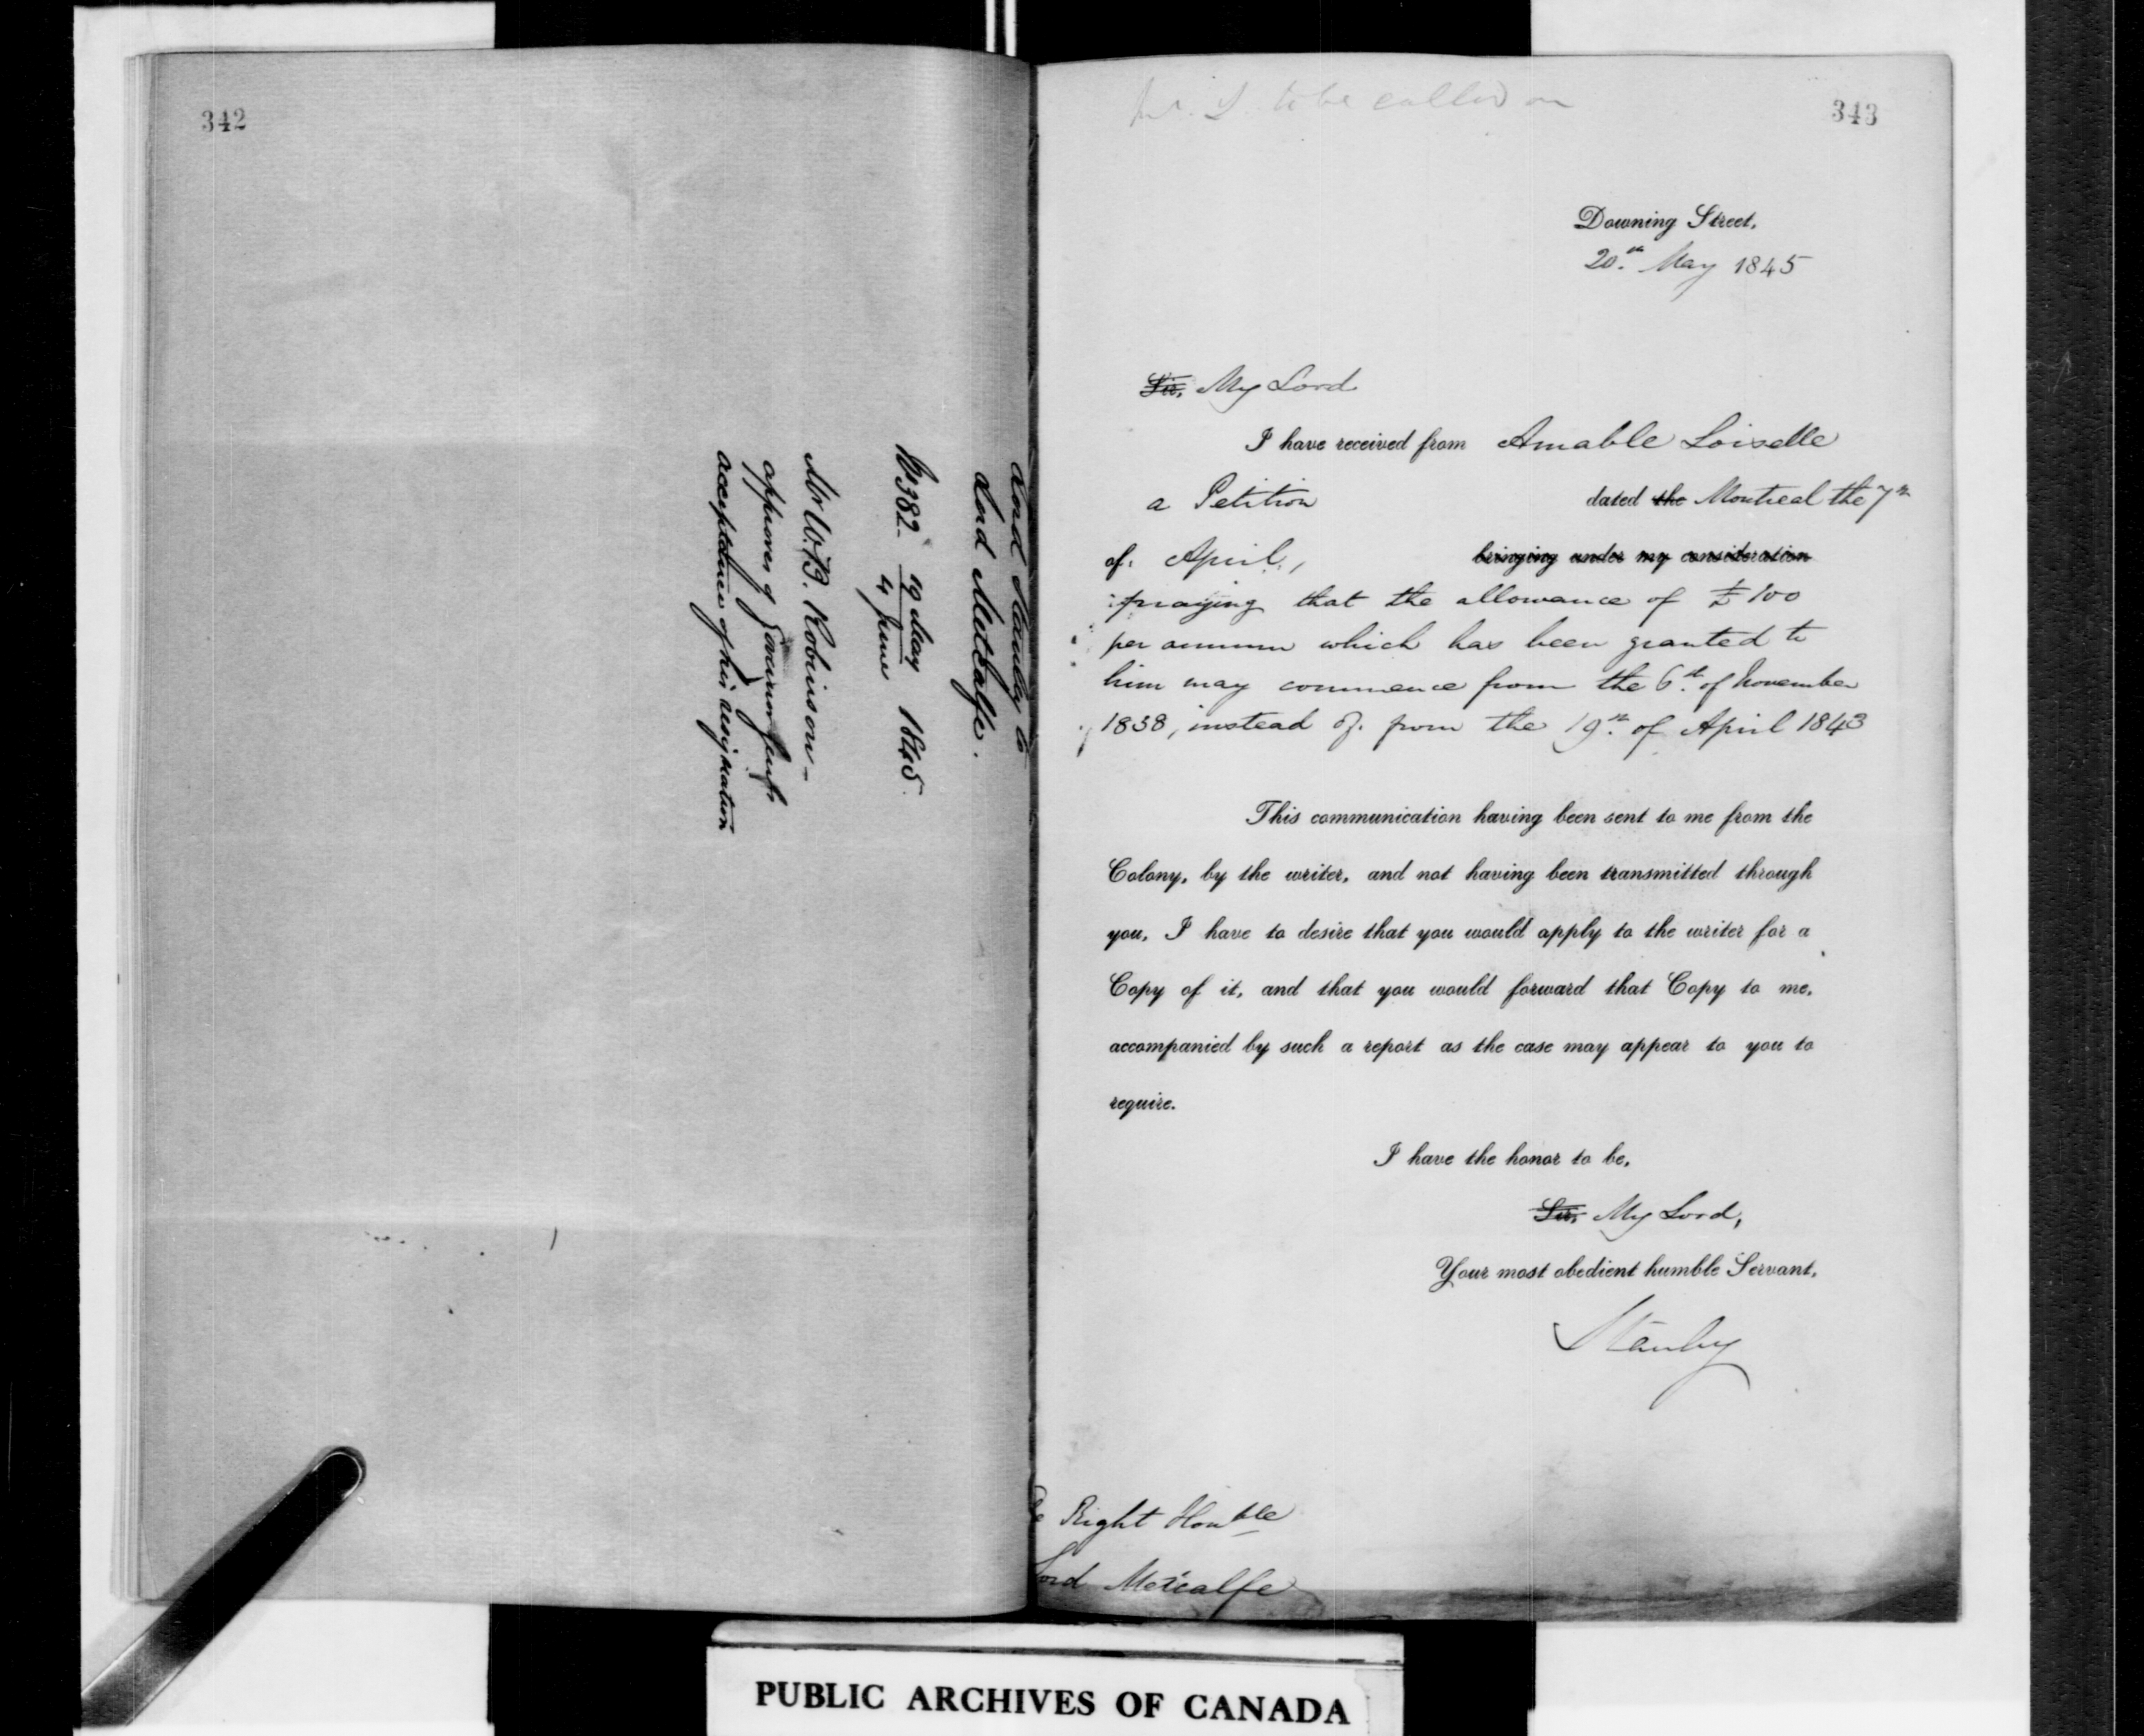 342
Lord Stanley to
Lord Metcalfe.
No 382 19 May 1845
4 June
Mr W. B. Robinson -
approves of Governor
acceptance of his resignation
343
to be called on
Downing Street,
20.th May 1845
Sir, My Lord
I have received from Amable Loiselle
a Petition dated the Montreal the 7th
of April, bringing under my consideration
praying that the allowance of £100
per annum which has been granted to
him may commence from the 6.th of November
1838, instead of from the 19.th of April 1843
This communication having been sent to me from the
Colony, by the writer, and not having been transmitted through
you, I have to desire that you would apply to the writer for a
Copy of it, and that you would forward that Copy to me,
accompanied by such a report as the case may appear to you to
require.
I have the honor to be,
Sir, My Lord,
Your most obedient humble Servant,
Stanley
Right Honble
Lord Metcalfe
PUBLIC ARCHIVES OF CANADA